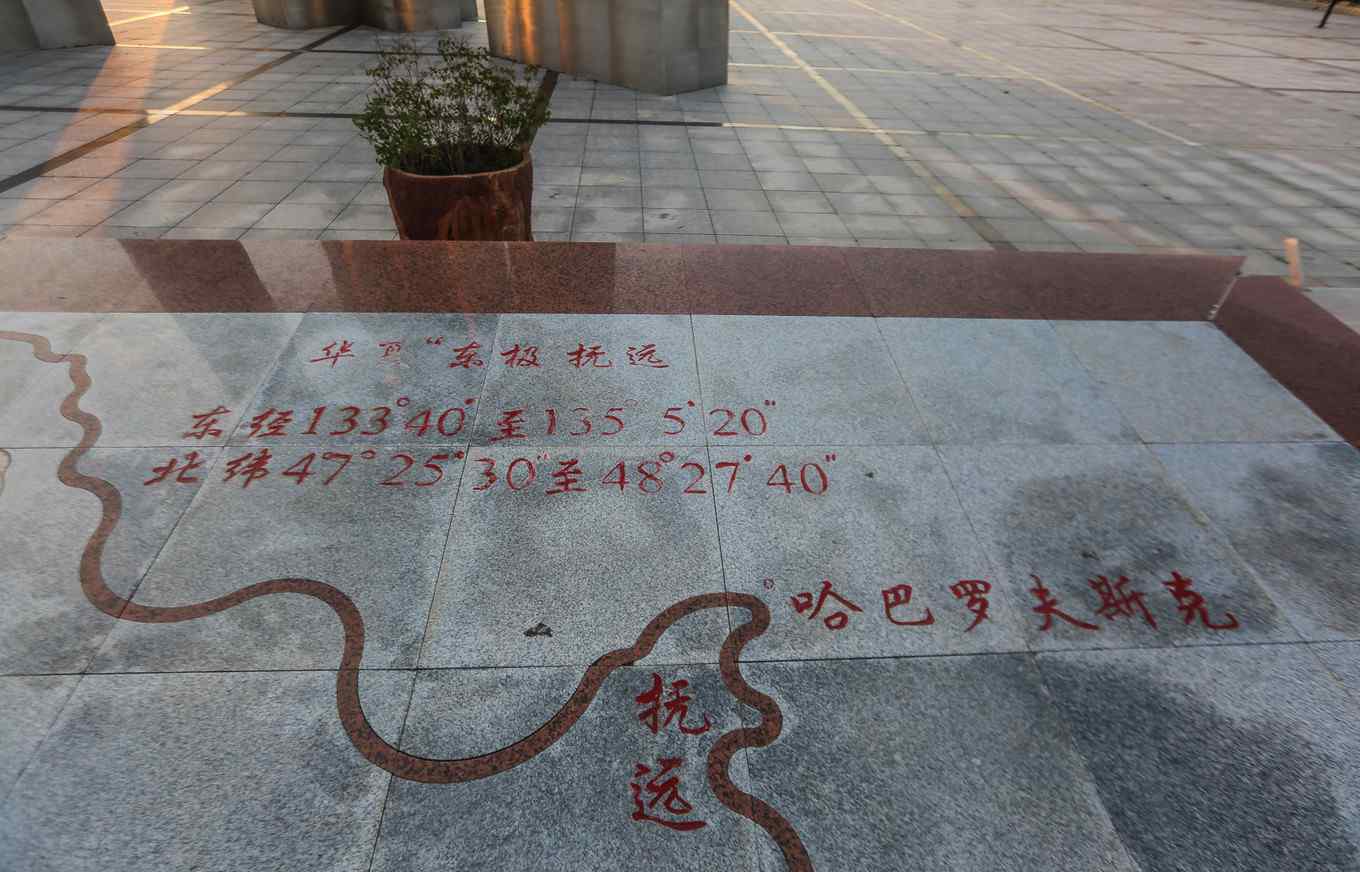 华夏“东极 抚远
东经133°40′至135°5′20″
北纬47°25′30″至48°27′40″
哈巴罗夫斯克
抚远